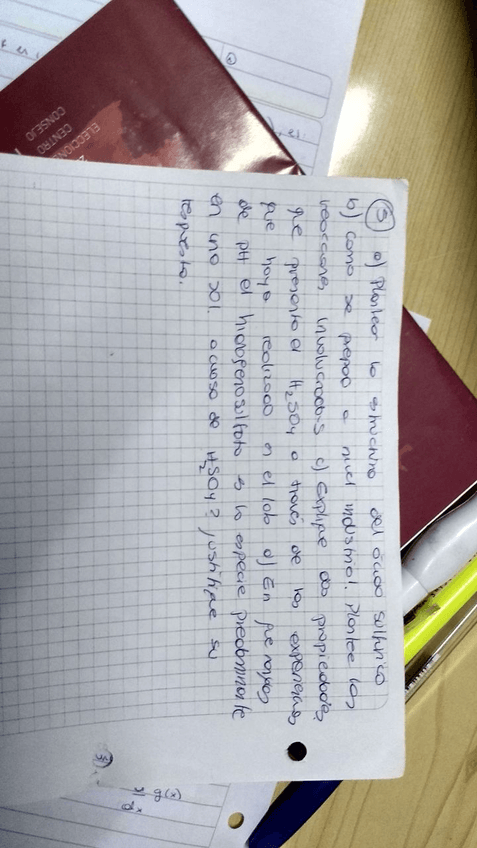 5 a) Plantee la estructura del ácido sulfúrico
b) como se prepara a nivel industrial. Plantee las
reacciones involucradas c) Explique dos propiedades
que presenta el H₂SO₄ a través de las experiencias
que haya realizado en el lab d) En que rangos
de pH el hidrogenosulfato es la especie predominante
en una sol. acuosa de H₂SO₄? Justifique su
respuesta.
CONSEJO
CENTRO
ELECCIONES